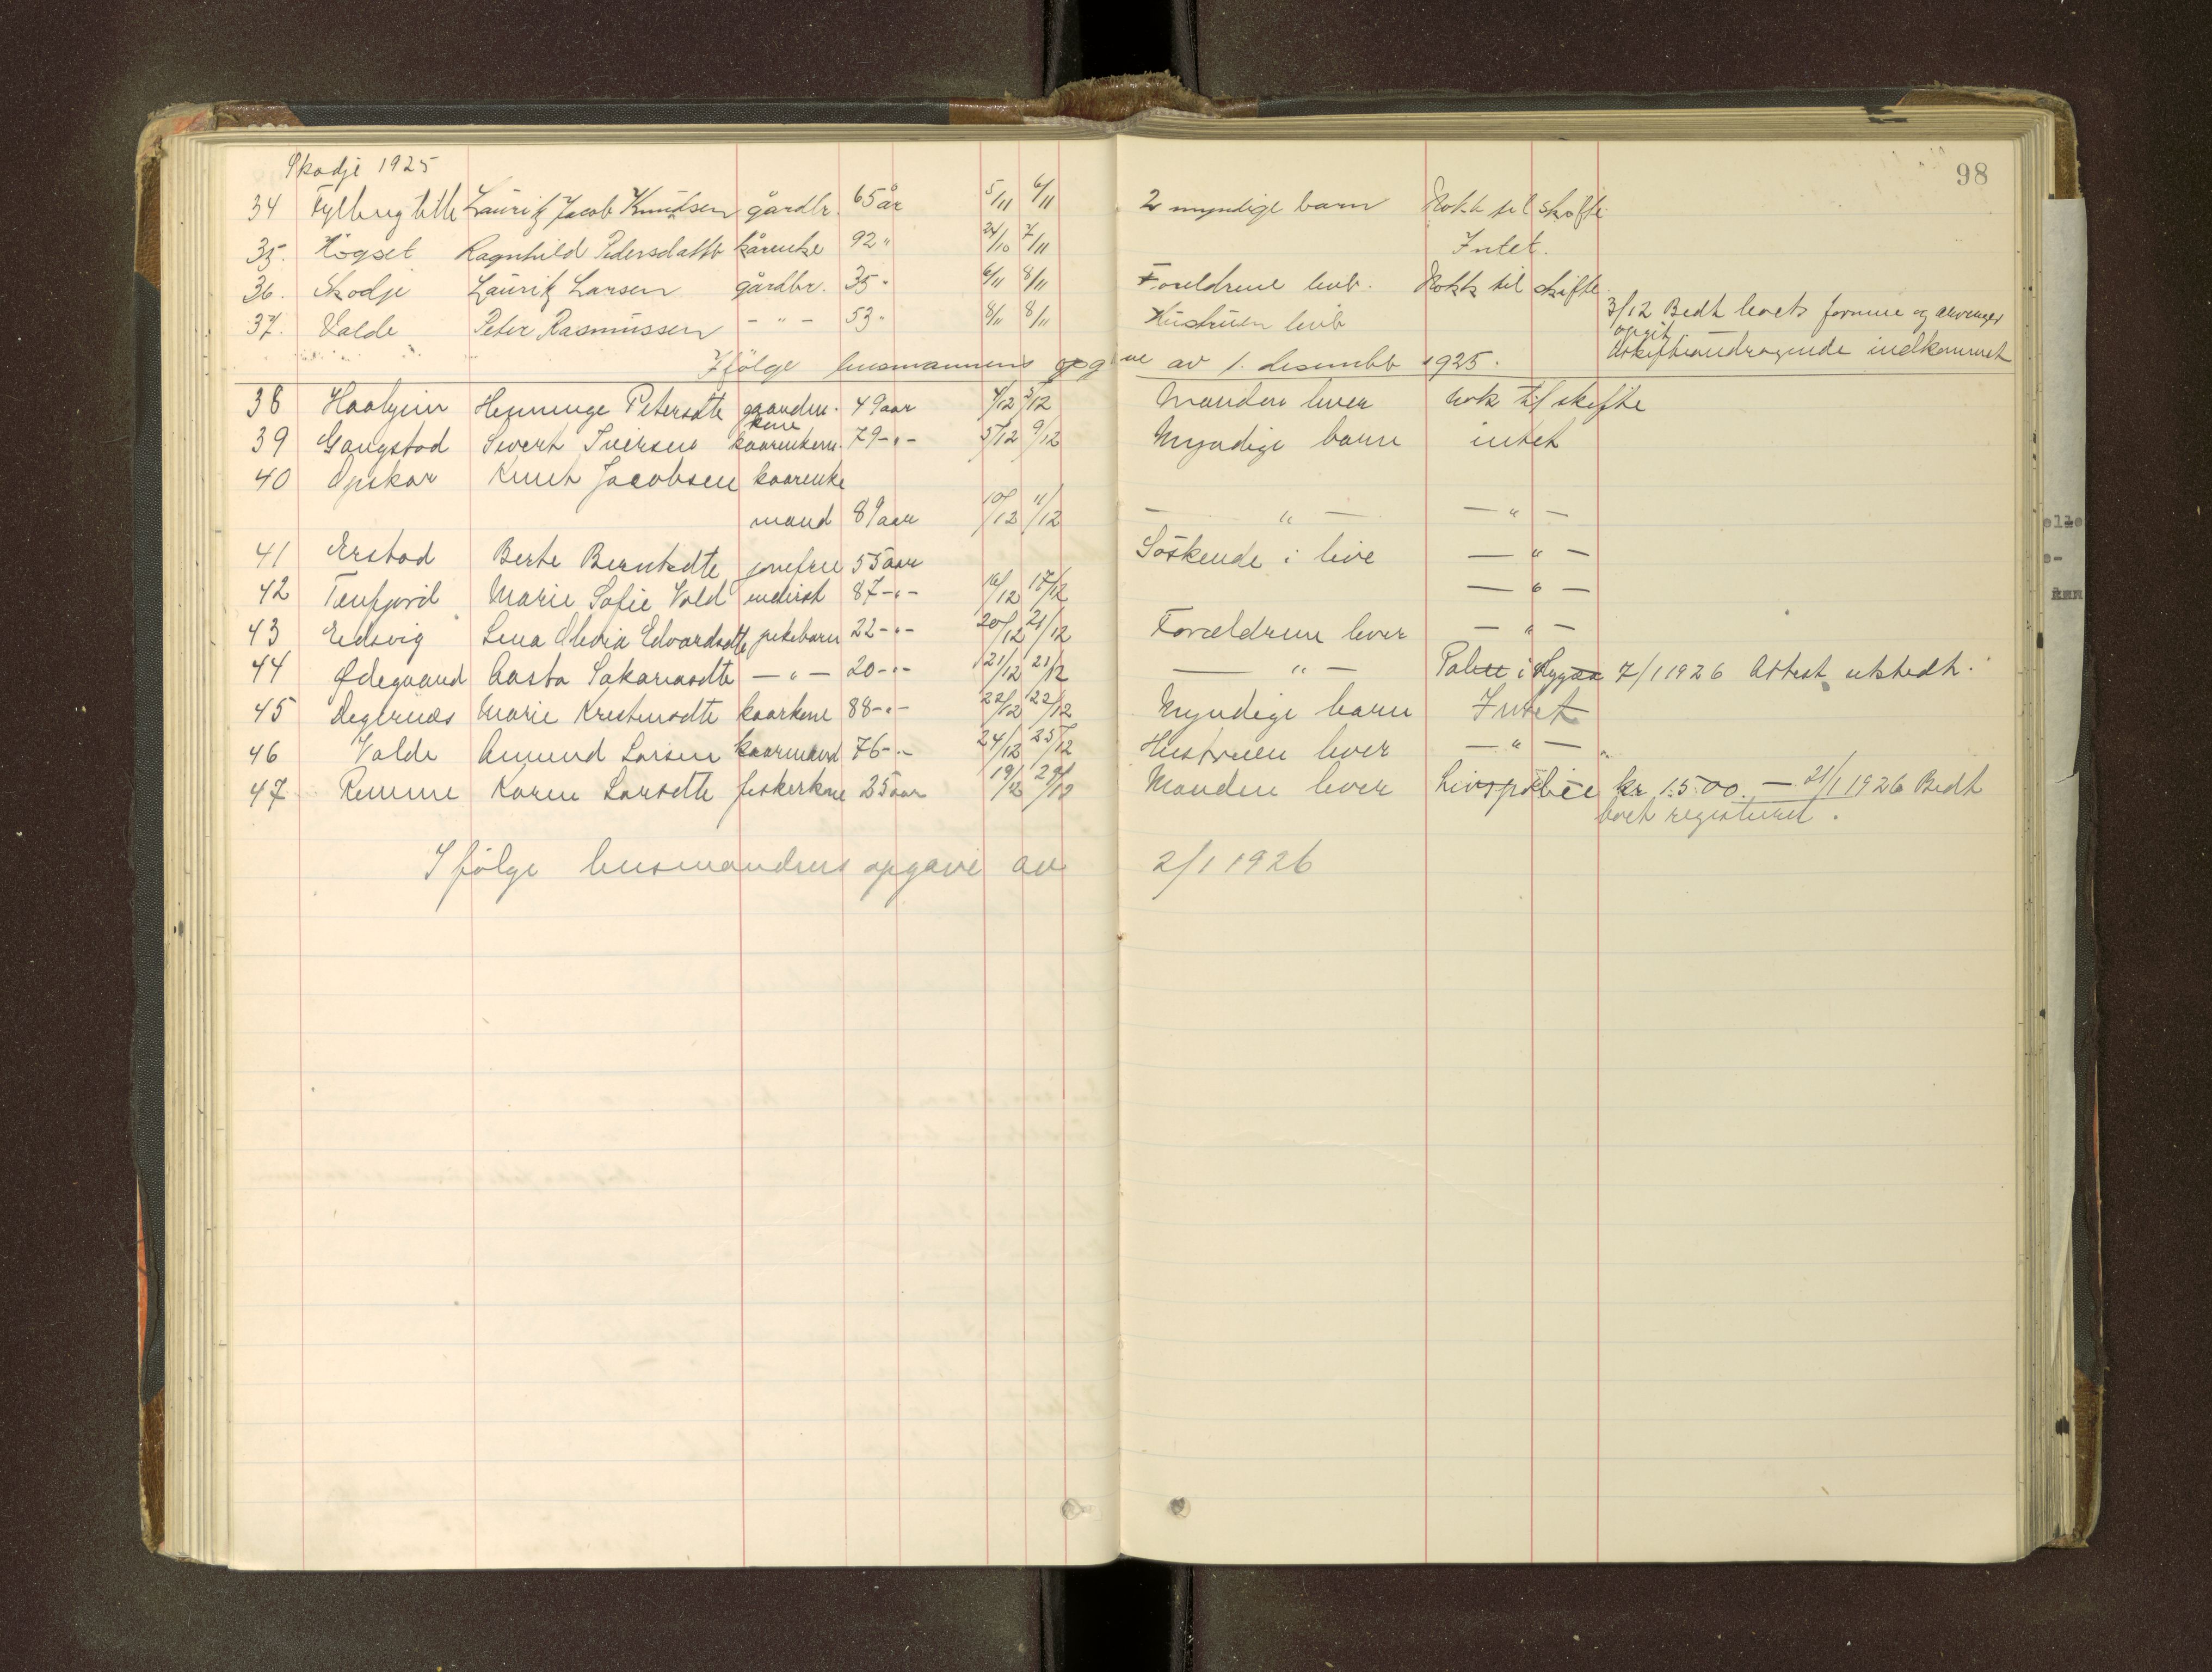 Skodje 1925
98
34 Fylling lille Lauritz Jacob Knudsen gårdbr. 65 år 5/11 6/11 2 myndige barn Nokk til skifte
35. Högset Ragnhild Pedersdattr kårenke 92 " 24/10 7/11 Intet.
36. Skodje Lauritz Larsen gårdbr. 35 " 6/11 8/11 Foreldrene levr. Nokk til skifte
37. Valde Peter Rasmussen - " - 53 " 8/11 8/11 Hustruen levr 3/12 Bedt boets formue og
opgit
indkommet
Ifölge lensmannens opgave av 1. desembr 1925.
38 Haahjem Henninge Petersdtr gaardm. 49 aar 4/12 5/12 Manden lever nok til skifte
kone
39 Gangstad Sivert Iversen 79 - " - 5/12 9/12 Myndige barn intet
40 Opskar Knut Jacobsen kaarenke
mand 89 aar 10/12 11/12 - " - - " -
41 Erstad Berte Berntsdtr jomfru 55 aar Söskende i live - " -
42 Tenfjord Marie Sofie Vold 87 - " - 16/12 17/12 - " -
43 Eidsvig Lena Olivia Edvardsdtr pikebarn 22 - " - 20/12 21/12 Forældrene lever - " -
44 Ødegaard Aasta Sakariasdtr - " - 20 - " - 21/12 21/12 - " - i Hygaa 7/1 1926 Attest utstedt.
45 Degernes Marie Kristensdtr kaarkone 88 - " - 22/12 22/12 Myndige barn Intet
46 Valde Amund Larsen kaarmand 76 - " - 24/12 25/12 Hustruen lever - " -
47 Remme Karen Larsdtr fiskerkone 25 aar 19/12 29/12 Manden lever Livspolice kr 1500. - 21/1 1926 Bedt
boet registreret.
Ifölge lensmandens opgave av 2/1 1926